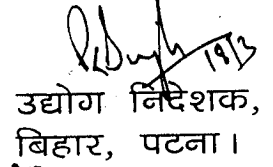 18/3
उद्योग निदेशक,
बिहार, पटना।